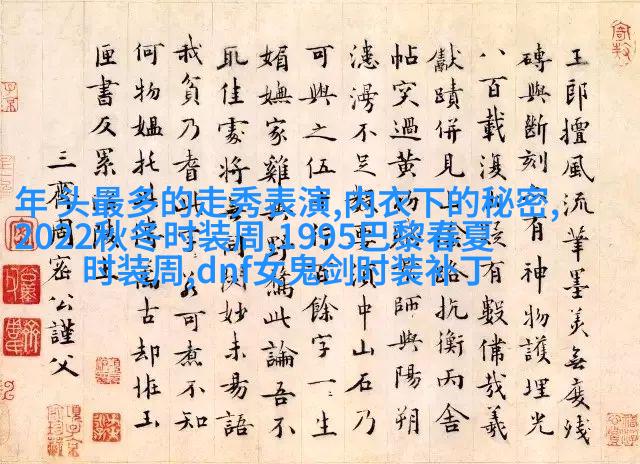 年 头最多的走秀表演,内衣下的秘密,
2022秋冬时装周,1995巴黎春夏
时装周,dnf女鬼剑时装补丁
王郎擅風流筆墨美無殘
磚與斷刻有神物護埋光
八百載復疑有數儔哉羲
獻蹟併見餘路抗衡而舍
帖突過黃初師與陽朔
漶漫不足中山石乃
可與之伍百餘字一生
媚嫵家雞與野鶩此論吾不
取佳處將無同閱妙未易語
我貧乃耆此可煮不知
何物媼托萬古却玉
匣書反累陵土
三齋周密公謹父